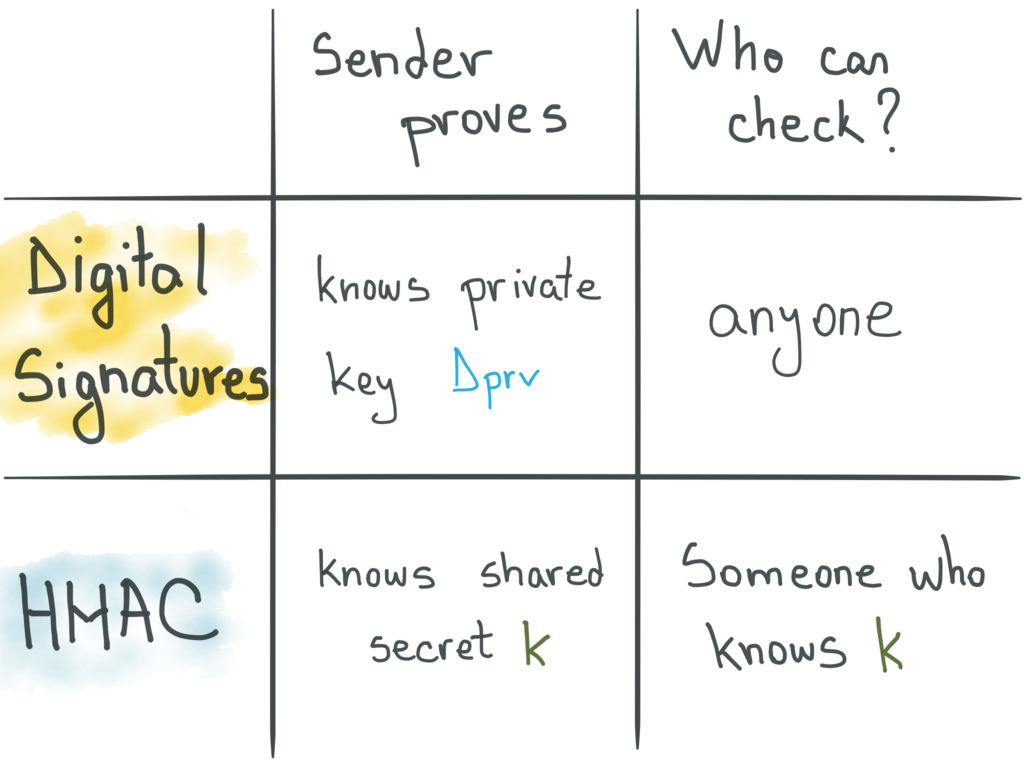 Sender
proves
Who can
check?
Digital
Signatures
knows private
key Dprv
anyone
HMAC
knows shared
secret k
Someone who
knows k